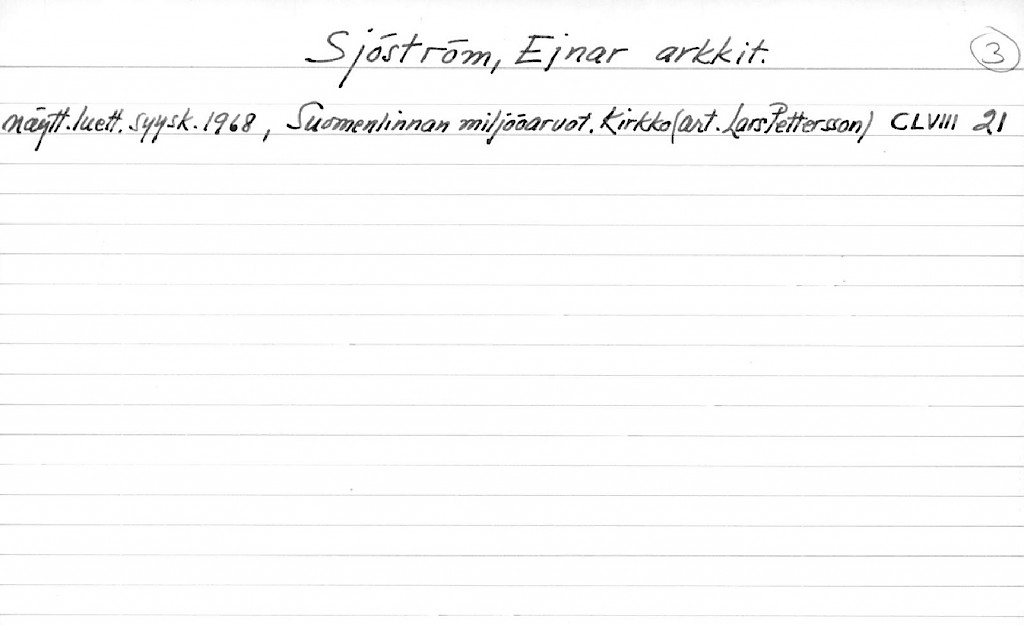 Sjöström, Ejnar arkkit. 3
näytt.luett. syysk. 1968, Suomenlinnan miljööarvot. Kirkko (art. Lars Pettersson) CLVIII 21